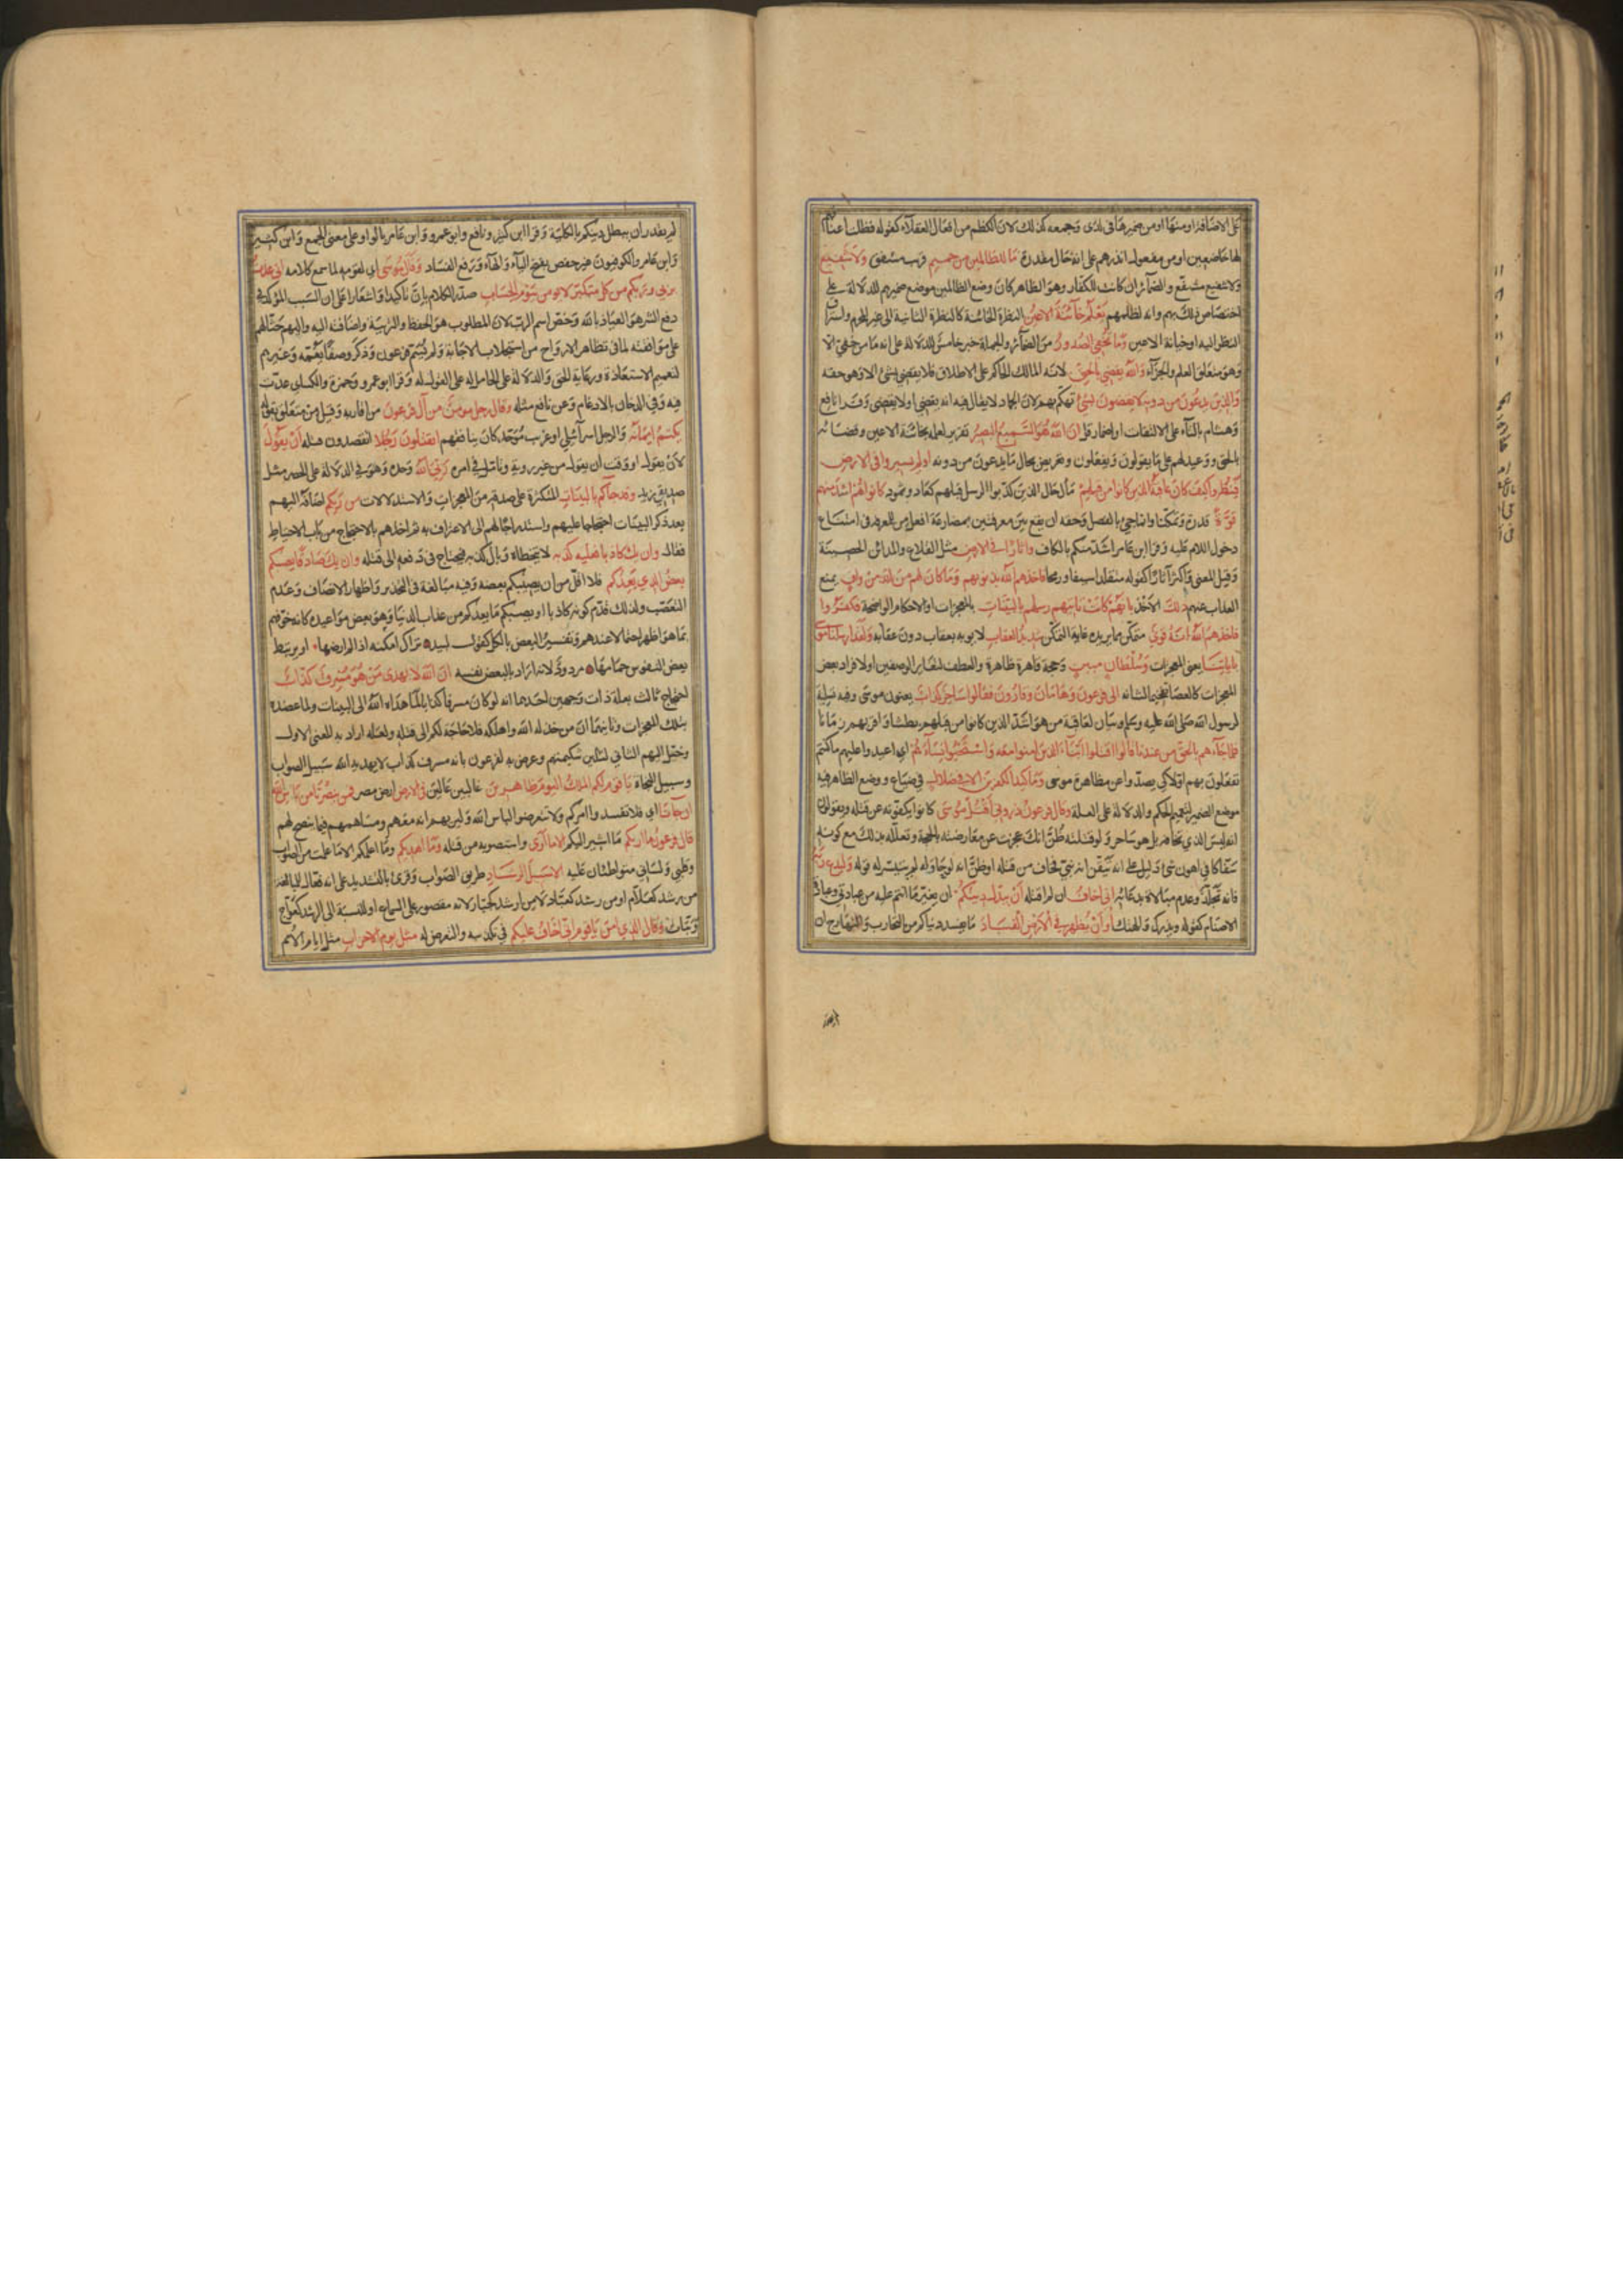 على الاضافة او منها او من ضميرها في لدى وجمعه كذلك لان الكظم من افعال العقلاء كقوله فظلت اعناقهم
لها خاضعين او من مفعول انذرهم على انه حال مقدرة ما للظالمين من حميم قريب مشفق ولا شفيع
ولا شفيع مشفع والضمائر ان كانت للكفار وهو الظاهر كان وضع الظالمين موضع ضميرهم للدلالة على
اختصاص ذلك بهم وانه لظلمهم يعلم خائنة الاعين النظرة الخائنة كالنظرة الثانية الى غير المحرم واستراق
النظر اليه او خيانة الاعين وما تخفي الصدور من الضمائر والجملة خبر خامس للدلالة على انه ما من خفي الا
وهو متعلق العلم والجزآء والله يقضي بالحق لانه المالك الحاكم على الاطلاق فلا يقضي بشئ الا وهو حقه
والذين يدعون من دونه لا يقضون بشئ تهكم بهم لان الجماد لا يقال فيه انه يقضي او لا يقضي وقرا نافع
وهشام بالتآء على الالتفات او اضمار قل ان الله هو السميع البصير تقرير لعلمه بخائنة الاعين وقضائه
بالحق ووعيد لهم على ما يقولون ويفعلون وتعريض بحال ما يدعون من دونه اولم يسيروا في الارض
فينظروا كيف كان عاقبة الذين كانوا من قبلهم مآل حال الذين كذبوا الرسل قبلهم كعاد وثمود كانوا هم اشد منهم
قوة قدرة وتمكنا وانما جئ بالفصل وحقه ان يقع بين معرفتين بمضارعة افعل من للمعرفة في امتناع
دخول اللام عليه وقرا ابن عامر اشد منكم بالكاف واثارا في الارض مثل القلاع والمدائن الحصينة
وقيل المعنى واكثر آثارا كقوله متقلدا سيفا ورمحا فاخذهم الله بذنوبهم وما كان لهم من الله من واق يمنع
العذاب عنهم ذلك الاخذ بانهم كانت تاتيهم رسلهم بالبينات بالمعجزات او الاحكام الواضحة فكفروا
فاخذهم الله انه قوي متمكن مما يريده غاية التمكن شديد العقاب لا يوبه بعقاب دون عقابه ولقد ارسلنا موسى
باياتنا يعني المعجزات وسلطان مبين وحجة قاهرة ظاهرة والعطف لتغاير الوصفين او لافراد بعض
المعجزات كالعصا تفخيما لشانه الى فرعون وهامان وقارون فقالوا ساحر كذاب يعنون موسى وفيه تسلية
لرسول الله صلى الله عليه وسلم وبيان لعاقبة من هو اشد الذين كانوا من قبلهم بطشا واقربهم زمانا
فلما جاءهم بالحق من عندنا قالوا اقتلوا ابناء الذين امنوا معه واستحيوا نساءهم اي اعيدوا عليهم ما كنتم
تفعلون بهم اولا كي يصدوا عن مظاهرة موسى وما كيد الكفرين الا في ضلال في ضياع ووضع الظاهر فيه
موضع الضمير لتعميم الحكم والدلالة على العلة وقال فرعون ذروني اقتل موسى كانوا يكفونه عن قتله ويقولون
انه ليس الذي تخافه بل هو ساحر ولو قتلته ظن انك عجزت عن معارضته بالحجة وتعلله بذلك مع كونه
سفاكا في اهون شئ دليل على انه تيقن انه نبي فخاف من قتله او ظن انه لو حاوله لم يتيسر له قوله وليدع ربه
فانه تجلد وعدم مبالاة بدعائه اني اخاف ان لم اقتله ان يبدل دينكم ان يغير ما انتم عليه من عبادتي وعبادة
الاصنام كقوله ويذرك والهتك او ان يظهر في الارض الفساد ما يفسد دنياكم من التحارب والتهارج ان
لم يقدر ان يبطل دينكم بالكلية وقرا ابن كثير ونافع وابو عمرو وابن عامر بالواو على معنى الجمع وابن كثير
وابن عامر والكوفيون غير حفص بفتح اليآء والهآء ورفع الفساد وقال موسى اي لقومه لما سمع كلامه اني عذت
بربي وربكم من كل متكبر لا يومن بيوم الحساب صدر الكلام بان تاكيدا واشعارا على ان السبب المؤكد في
دفع الشر هو العياذ بالله وخص اسم الرب لان المطلوب هو الحفظ والتربية واضافته اليه واليهم حثا لهم
على موافقته لما في تظاهر الارواح من استجلاب الاجابة ولم يسم فرعون وذكر وصفا يعمه وغيره
لتعميم الاستعاذة ورعاية الحق والدلالة على الحامل له على القول له وقرا ابو عمرو وحمزة والكسائي عدت
فيه وفي الدخان بالادغام وعن نافع مثله وقال رجل مومن من آل فرعون من اقاربه وقيل من متعلق بقوله
يكتم ايمانه والرجل اسرآئيلي او غريب موحد كان ينافقهم اتقتلون رجلا اتقصدون قتله ان يقول
لان يقول او وقت ان يقول من غير روية وتامل في امره ربي الله وحده وهو في الدلالة على الحصر مثل
صديقي زيد وقد جآكم بالبينات المتكثرة على صدقه من المعجزات والاستدلالات من ربكم اضافه اليهم
بعد ذكر البينات احتجاجا عليهم واستدراجا لهم الى الاعتراف به ثم اخذهم بالاحتجاج من باب الاحتياط
فقال وان يك كاذبا فعليه كذبه لا يتخطاه وبال كذبه فيحتاج في دفعه الى قتله وان يك صادقا يصبكم
بعض الذي يعدكم فلا اقل من ان يصيبكم بعضه وفيه مبالغة في التحذير واظهار الانصاف وعدم
التعصب ولذلك قدم كونه كاذبا او يصبكم ما يعدكم من عذاب الدنيا وهو بعض مواعيده كانه خوفهم
بما هو اظهر احتمالا عندهم وتفسير البعض بالكل كقول لبيد تراك امكنه اذا لم ارضها او يرتبط
بعض النفوس حمامها مردود لانه اراد بالبعض نفسه ان الله لا يهدى من هو مسرف كذاب
احتجاج ثالث بعلة ذات وجهين احدهما انه لو كان مسرفا كذابا لما هداه الله الى البينات ولما عضده
بتلك المعجزات وثانيهما ان من خذله الله واهلكه فلا حاجة لكم الى قتله ولعله اراد به المعنى الاول
وخيل اليهم الثاني لتلين شكيمتهم وعرض به لفرعون بانه مسرف كذاب لا يهديه الله سبيل الصواب
وسبيل النجاة يا قوم لكم الملك اليوم ظاهرين غالبين عالين في الارض ارض مصر فمن ينصرنا من باس الله
ان جآنا اي فلا تفسدوا امركم ولا تتعرضوا لباس الله وليريهم انه معهم ومساهمهم فيما ينصح لهم
قال فرعون ما اريكم ما اشير اليكم الا ما ارى واستصوبه من قتله وما اهديكم وما اعلمكم الا ما علمت من الصواب
وقلبي ولساني متواطئان عليه الا سبيل الرشاد طريق الصواب وقرئ بالتشديد على انه فعال للمبالغة
من رشد كعلام او من رشد كعباد لا من ارشد كجبار لانه مقصور على السماع او للنسبة الى الرشد كعواج
وبتات وقال الذي امن يا قوم اني اخاف عليكم في تكذيبه والتعرض له مثل يوم الاحزاب مثل ايام الامم